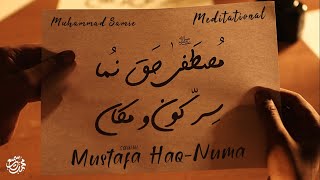 Muhammad Samie
Meditational
مُصطفیٰ حق نُما
سِرِّ کون و مکاں
Mustafa Haq-Numa